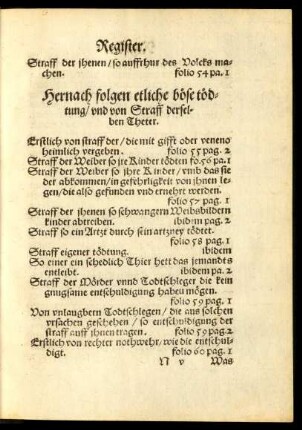 Register.
Straff der jhenen / so auffrhur des Volcks ma⸗
chen. folio 54 pa. 1
Hernach folgen etliche böse töd⸗
tung / vnd von Straff dersel⸗
ben Theter.
Erstlich von straff der / die mit gifft oder veneno
heimlich vergeben. folio 55 pag. 2
Straff der Weiber so jre Kinder tödten fo. 56 pa. 1
Straff der Weiber so jhre Kinder / vmb das sie
der abkommen / in gefehrligkeit von jhnen le⸗
gen / die also gefunden vnd ernehrt werden.
folio 57 pag. 1
Straff der jhenen so schwangern Weibsbildern
kinder abtreiben. ibidem pag. 2
Straff so ein Artzt durch sein artzney tödtet.
folio 58 pag. 1
Straff eigener tödtung. ibidem
So einer ein schedlich Thier hett das jemandts
entleibt. ibidem pa. 2
Straff der Mörder vnnd Todtschleger die kein
gnugsame entschüldigung haben mögen.
folio 59 pag. 1
Von vnlaugbarn Todtschlegen / die aus solchen
vrsachen geschehen / so entschüldigung der
straff auff jhnen tragen. folio 59 pag. 2
Erstlich von rechter nothwehr / wie die entschul⸗
digt. folio 60 pag. 1
N v Was